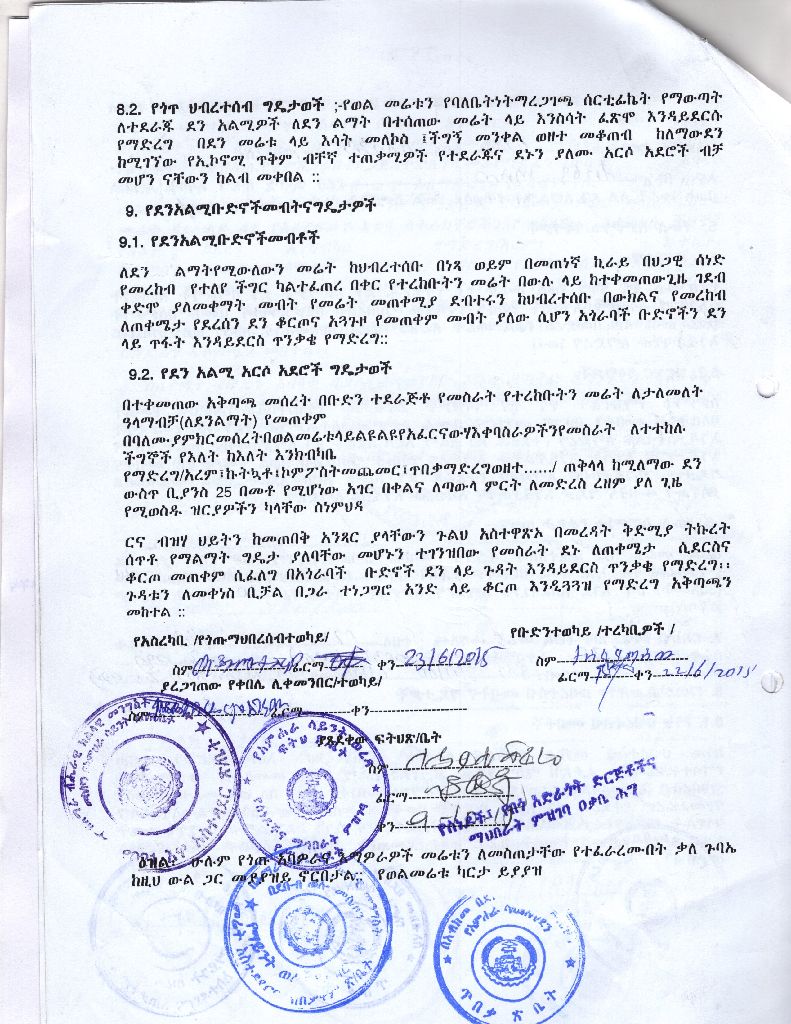 8.2. የጎጥ ህብረተሰብ ግዴታወች ;-የወል መሬቱን የባለቤትነትማረጋገጫ ሰርቲፊኬት የማውጣት
ለተደራጁ ደን አልሚዎች ለደን ልማት በተሰጠው መሬት ላይ እንስሳት ፈጽሞ እንዳይደርሱ
የማድረግ በደን መሬቱ ላይ እሳት መለኮስ ፤ችግኝ መንቀል ወዘተ መቆጠብ ከለማውደን
ከሚገኘው የኢኮኖሚ ጥቅም ብቸኛ ተጠቃሚዎች የተደራጁና ደኑን ያለሙ አርሶ አደሮች ብቻ
መሆን ናቸውን ከልብ መቀበል ::
9. የደንአልሚቡድኖችመብትናግዴታዎች
9.1. የደንአልሚቡድኖችመብቶች
ለደን ልማትየሚውለውን መሬት ከህብረተሰቡ በነጻ ወይም በመጠነኛ ኪራይ በህጋዊ ሰነድ
የመረከብ የተለየ ችግር ካልተፈጠረ በቀር የተረከቡትን መሬት በውሉ ላይ ከተቀመጠውጊዜ ገደብ
ቀድሞ ያለመቀማት መብት የመሬት መጠቀሚያ ደብተሩን ከህብረተሰቡ በውክልና የመረከብ
ለጠቀሜታ የደረሰን ደን ቆርጦና አጓጉዞ የመጠቀም መብት ያለው ሲሆን አጎራባች ቡድኖችን ደን
ላይ ጥፋት እንዳይደርስ ጥንቃቄ የማድረግ::
9.2. የደን አልሚ አርሶ አደሮች ግዴታወች
በተቀመጠው አቅጣጫ መሰረት በቡድን ተደራጅቶ የመስራት የተረከቡትን መሬት ለታለመለት
ዓላማብቻ(ለደንልማት) የመጠቀም
በባለሙያምክርመሰረትበወልመሬቱላይልዩልዩየአፈርናውሃእቀባስራዎችንየመስራት ለተተከሉ
ችግኞች የእለት ከእለት እንክብካቤ
የማድረግ/አረም፣ኩትኳቶ፣ኮምፖስትመጨመር፣ጥበቃማድረግወዘተ....../ ጠቅላላ ከሚለማው ደን
ውስጥ ቢያንስ 25 በመቶ የሚሆነው አገር በቀልና ለጣውላ ምርት ለመድረስ ረዘም ያለ ጊዜ
የሚወስዱ ዝርያዎችን ካላቸው ስነምህዳ
ርና ብዝሃ ህይትን ከመጠበቅ አንጻር ያላቸውን ጉልህ አስተዋጽኦ በመረዳት ቅድሚያ ትኩረት
ሰጥቶ የማልማት ግዴታ ያለባቸው መሆኑን ተገንዝበው የመስራት ደኑ ለጠቀሜታ ሲደርስና
ቆርጦ መጠቀም ሲፈለግ በአጎራባች ቡድኖች ደን ላይ ጉዳት እንዳይደርስ ጥንቃቄ የማድረግ፡፡
ጉዳቱን ለመቀነስ ቢቻል በጋራ ተነጋግሮ አንድ ላይ ቆርጦ እንዲጓጓዝ የማድረግ አቅጣጫን
መከተል ::
የአስረካቢ /የጎጡማህበረሰብተወካይ/
የቡድንተወካይ /ተረካቢዎች /
ስም ፊርማ ቀን 23/6/2015
ስም
ፊርማ ቀን 22/6/2015
ያረጋገጠው የቀበሌ ሊቀመንበር/ተወካይ/
ፊርማ ቀን
ያጸደቀው ፍትህጽ/ቤት
ስም
ፊርማ
ቀን
የሰነዶች፣ የበጎ አድራጎት ድርጅቶችና
ማህበራት ምዝገባ ዐቃቤ ሕግ
ሁሉም የጎጡ አባዎራና እማዎራዎች መሬቱን ለመስጠታቸው የተፈራረሙበት ቃለ ጉባኤ
ከዚህ ውል ጋር መያያዝ ኖርበታል:: የወልመሬቱ ካርታ ይያያዝ
ጥበቃ ጽ ቤት